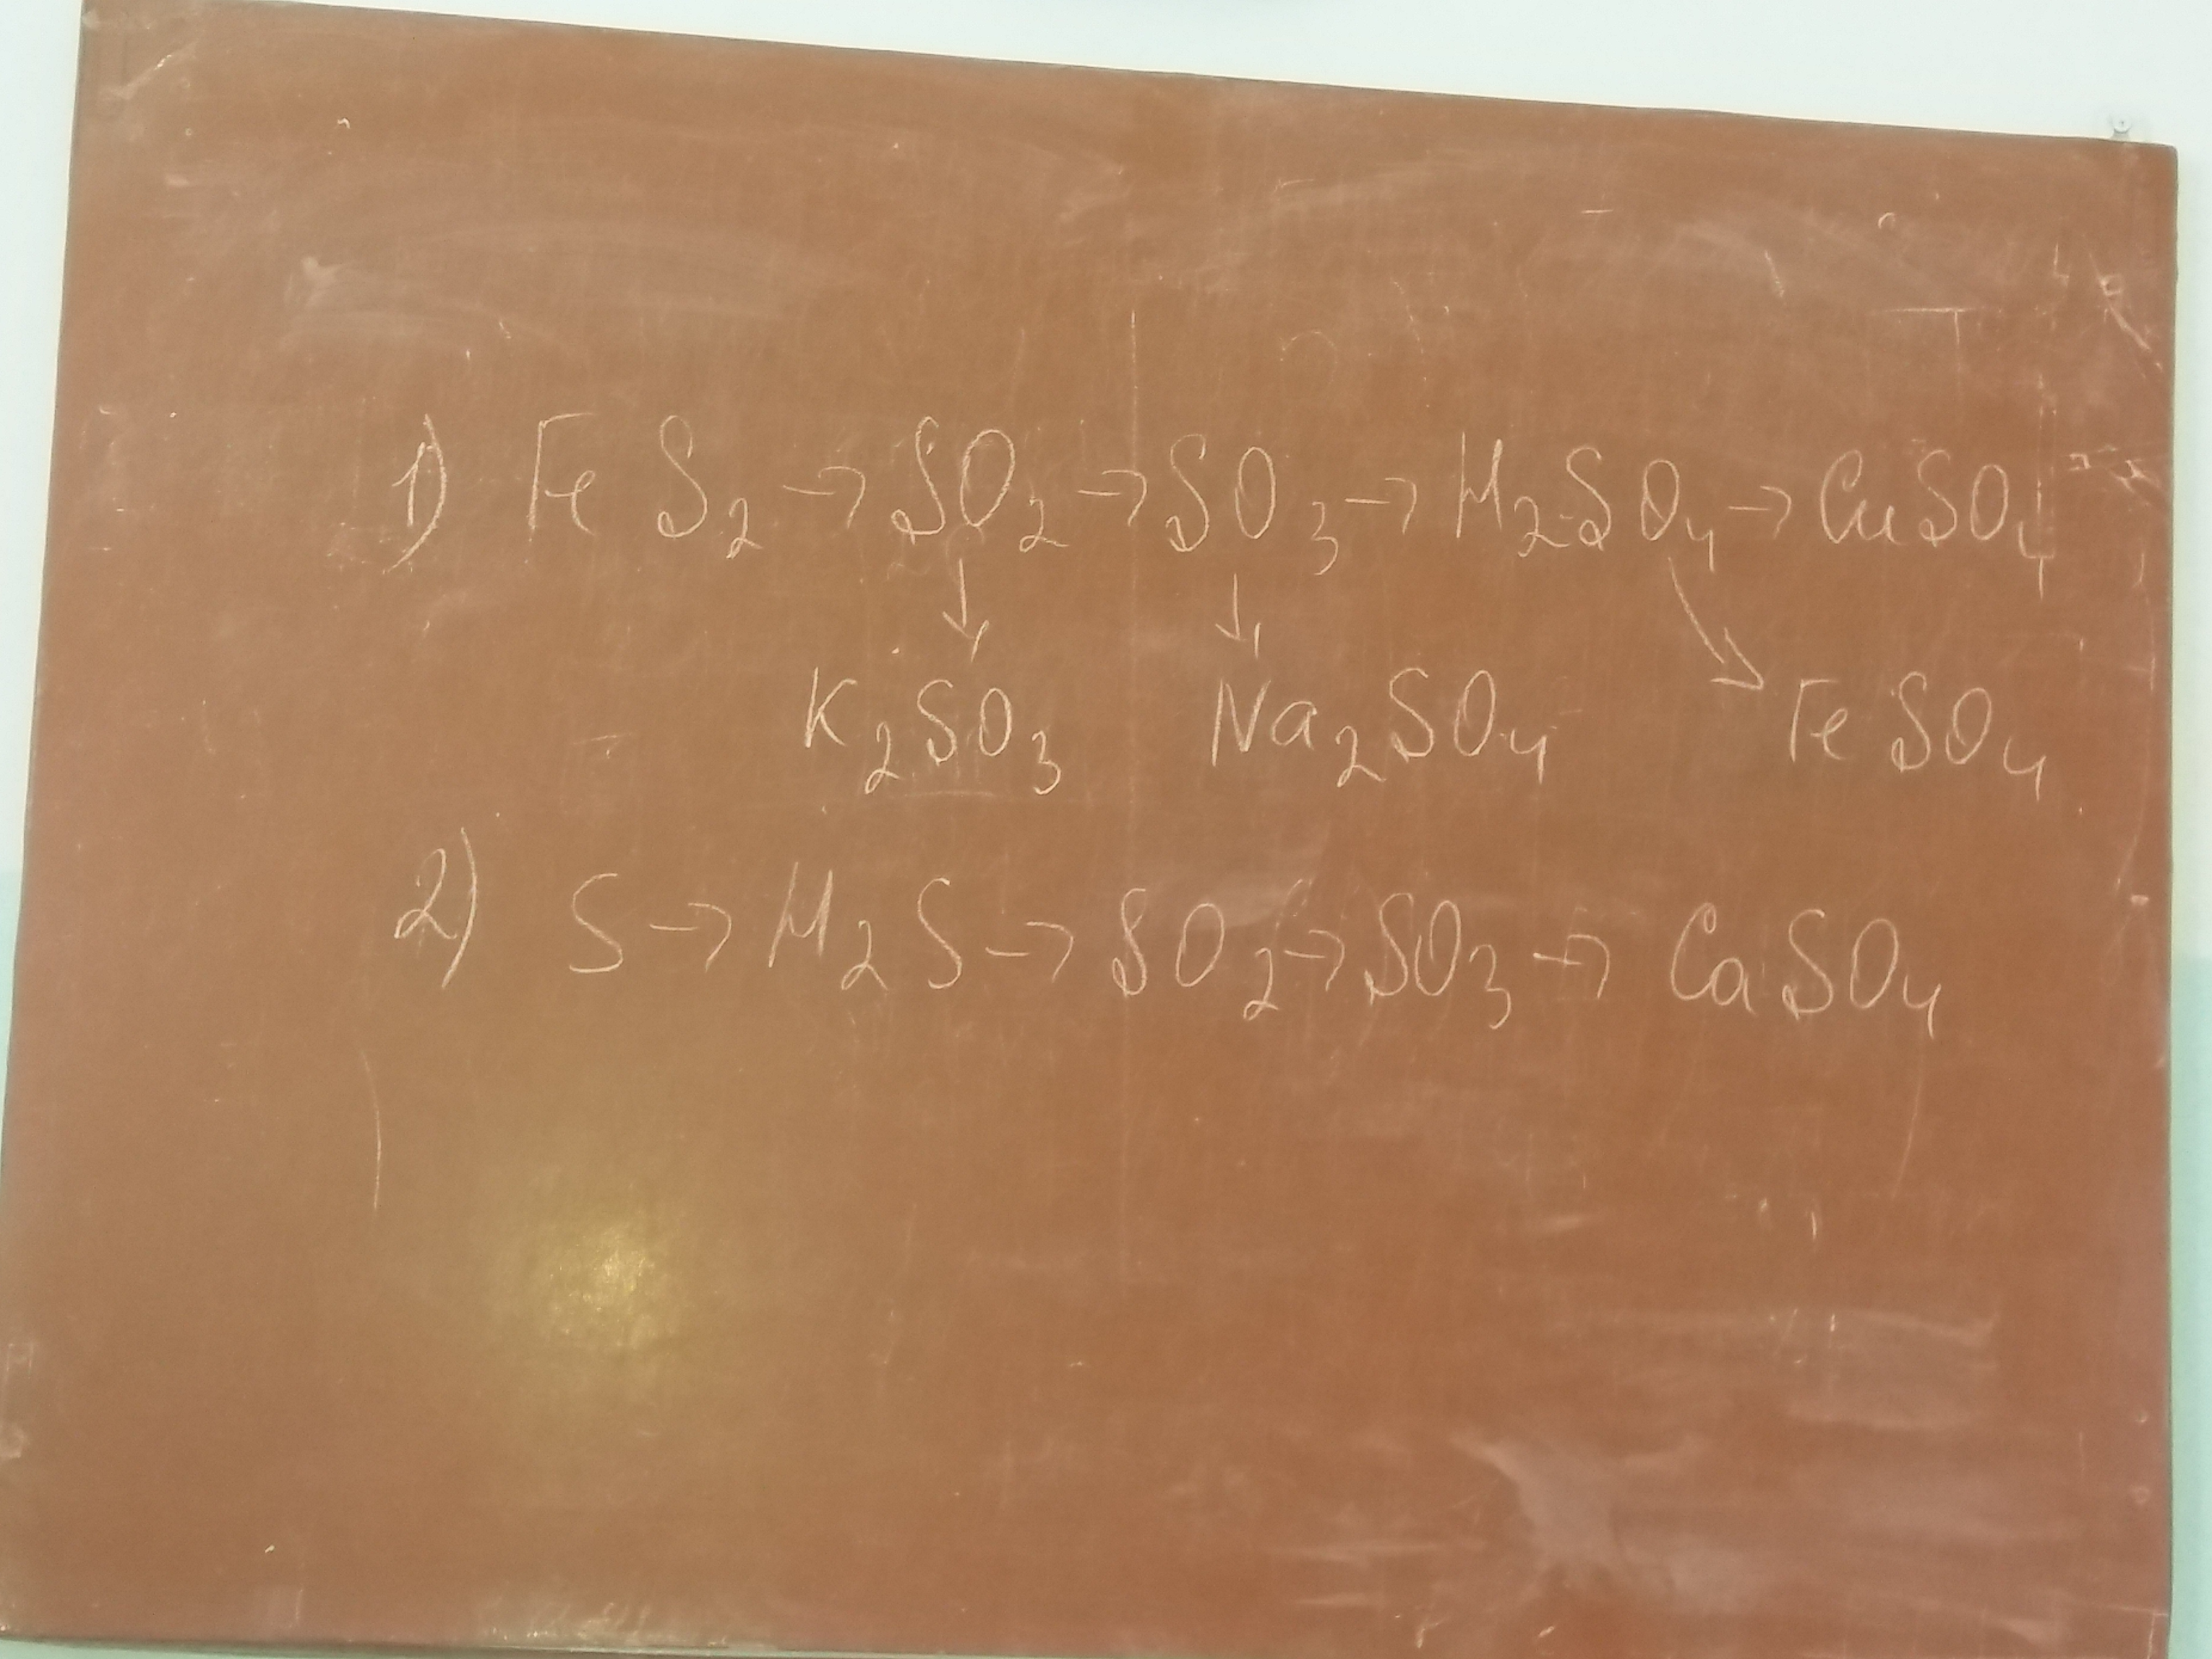 1) FeS₂ → SO₂ → SO₃ → H₂SO₄ → CuSO₄
↓ ↓ ↘
K₂SO₃ Na₂SO₄ FeSO₄
2) S → H₂S → SO₂ → SO₃ → CaSO₄